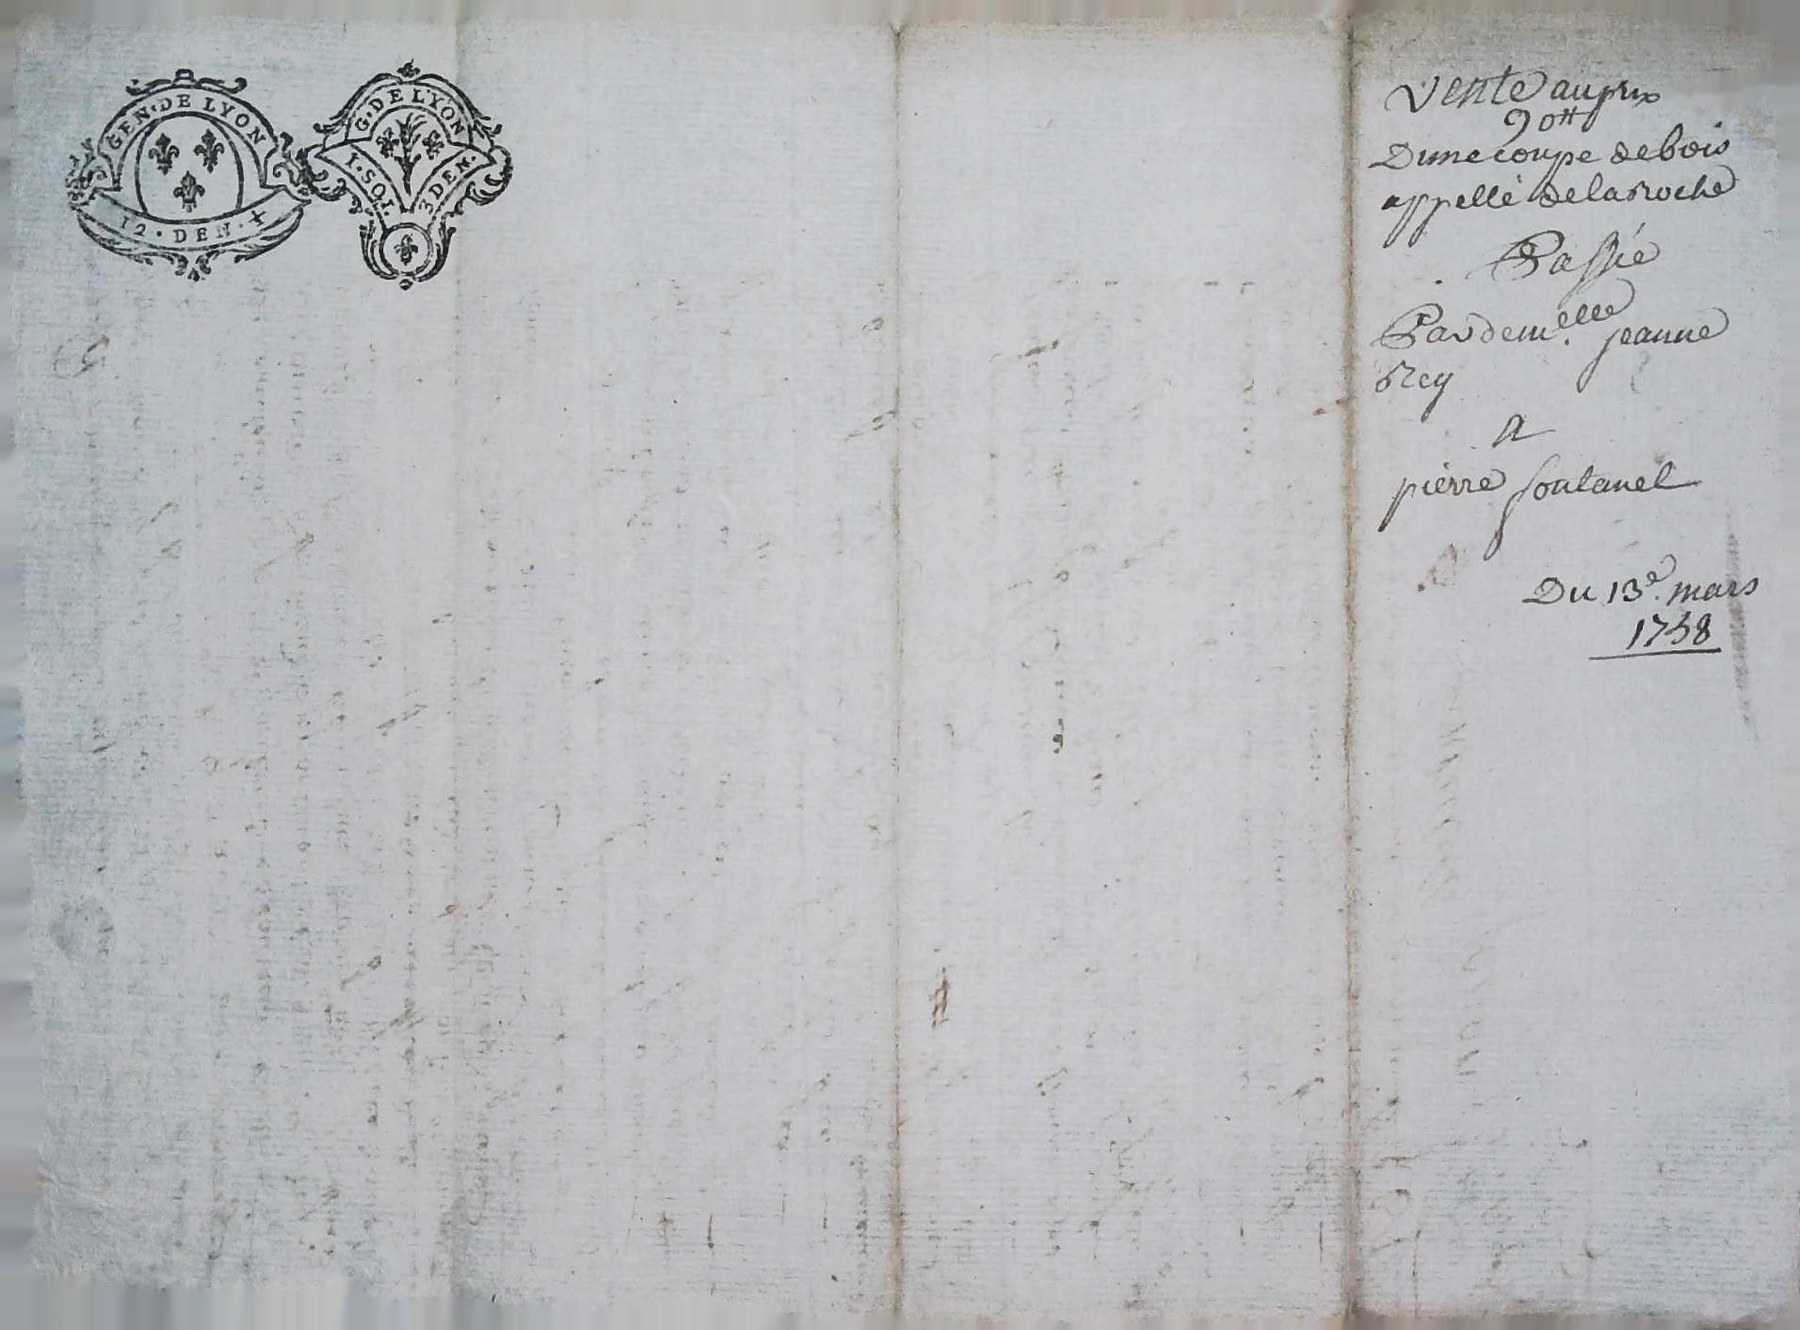 GEN·DE LYON
12·DEN·
G·DE LYON
1·SOL
3 DEN·
Vente au prix
90tt
Dune coupe de bois
appellé delaroche
Passée
Par demelle jeanne
Rey
a
pierre fontanel
Du 13e mars
1758